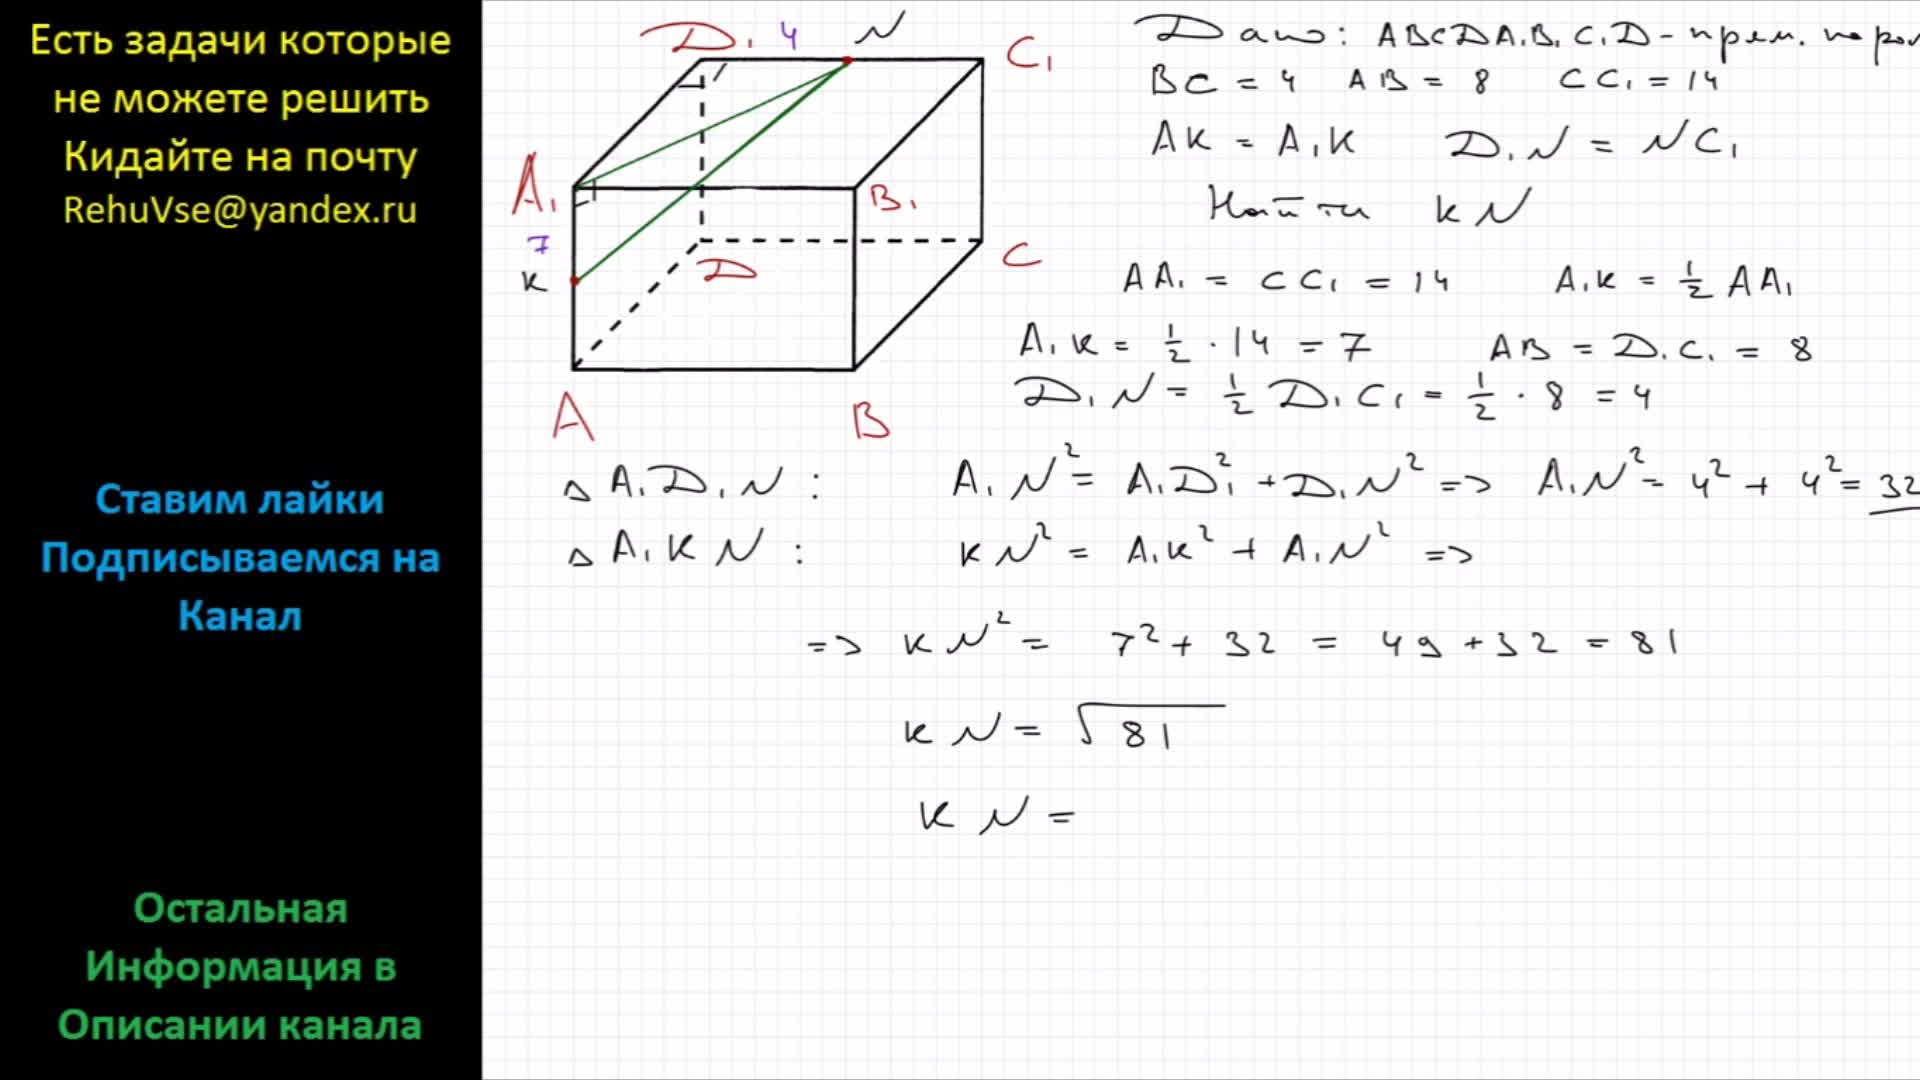 Есть задачи которые
не можете решить
Кидайте на почту
RehuVse@yandex.ru
Ставим лайки
Подписываемся на
Канал
Остальная
Информация в
Описании канала
D₁ 4 N C₁
A₁ B₁
7
K D C
A B
Дано: ABCDA₁B₁C₁D - прям. парал
BC = 4 AB = 8 CC₁ = 14
AK = A₁K D₁N = NC₁
Найти KN
AA₁ = CC₁ = 14 A₁K = 1/2 AA₁
A₁K = 1/2 · 14 = 7 AB = D₁C₁ = 8
D₁N = 1/2 D₁C₁ = 1/2 · 8 = 4
△ A₁D₁N : A₁N² = A₁D₁² + D₁N² => A₁N² = 4² + 4² = 32
△ A₁KN : KN² = A₁K² + A₁N² =>
=> KN² = 7² + 32 = 49 + 32 = 81
KN = √81
KN =